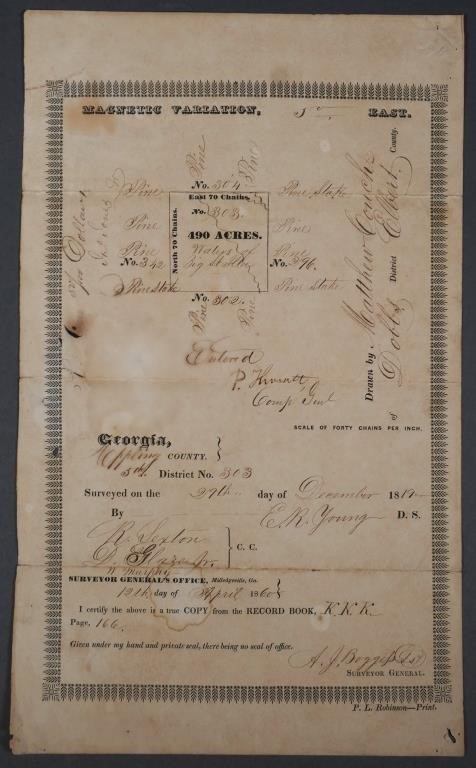 MAGNETIC VARIATION, 5° EAST.
Pine
Pine
No. 304
Pine
East 70 Chains.
Pine Stake
Pine
No. 303
Pine
North 70 Chains.
490 ACRES.
Pine
Waters of
Pine
No. 342
No. 396
Pine Stake
Pine Stake
No. 302
Pine
Pine
five Dollars
Drawn by Matthew Couch
of Dobbs District Elbert County.
Entered
Comp Genl
SCALE OF FORTY CHAINS PER INCH.
Georgia,
Appling COUNTY.
5th District No. 303
Surveyed on the 29th day of December 1819
By E. R. Young D. S.
R. Sexton
D. Glazier Jr. C. C.
W. Murphy
SURVEYOR GENERAL'S OFFICE, Milledgeville, Ga.
12th day of April 1860
I certify the above is a true COPY from the RECORD BOOK, K.K.K.
Page, 166.
Given under my hand and private seal, there being no seal of office.
A. J. Boggess
SURVEYOR GENERAL.
P. L. Robinson—Print.